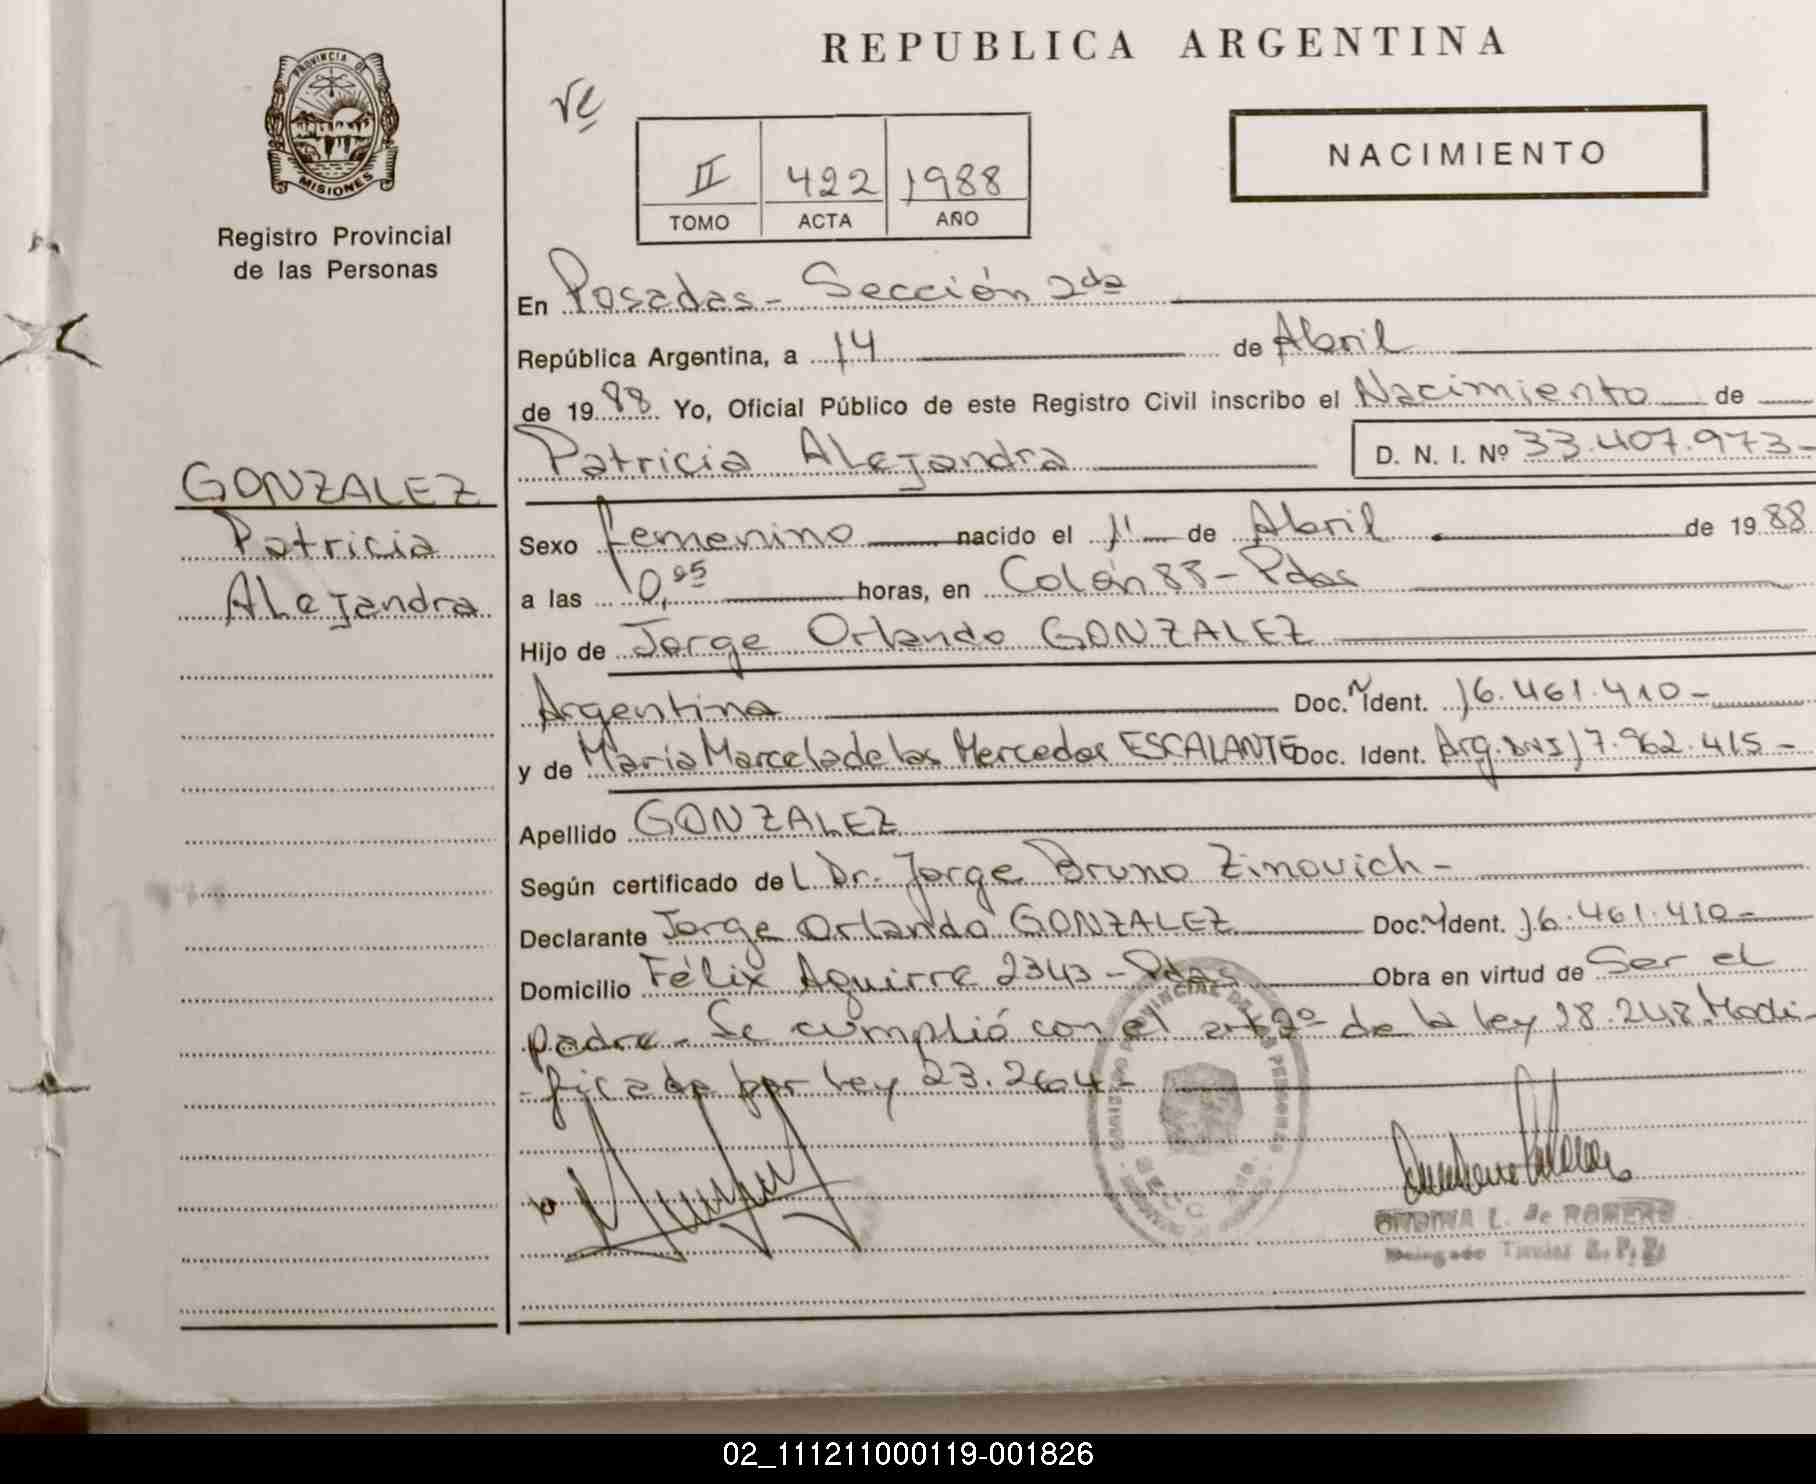 PROVINCIA DE
MISIONES
Registro Provincial
de las Personas
GONZALEZ
Patricia
Alejandra
REPUBLICA ARGENTINA
II 422 1988
TOMO ACTA AÑO
NACIMIENTO
En Posadas - Sección 2da
República Argentina, a 14 de Abril
de 1988 Yo, Oficial Público de este Registro Civil inscribo el Nacimiento de
Patricia Alejandra D. N. I. Nº 33.407.973-
Sexo femenino nacido el 1º de Abril de 1988
a las 0,05 horas, en Colón 83 - Pdas
Hijo de Jorge Orlando GONZALEZ
Argentina Doc. Ident. 16.461.410-
y de María Marcela de las Mercedes ESCALANTE Doc. Ident. Arg. DNI 17.962.415-
Apellido GONZALEZ
Según certificado del Dr. Jorge Bruno Zinovich -
Declarante Jorge Orlando GONZALEZ Doc. Ident. 16.461.410-
Domicilio Félix Aguirre 2343 - Pdas Obra en virtud de Ser el
padre - Se cumplió con el art 2º de la ley 18.248. Modi-
-ficada por ley 23.264-
L. de ROMERO
02_111211000119-001826